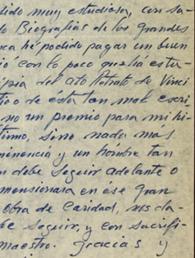 dido muy estudioso, con sa
do Biografias de los grandes
ca hé podido pagar un buen
con lo poco que
del
de esta tan mal escri
no un premio para mi
timo, sino nada mas
minencia y un hombre tan
debe seguir adelante o
mensionara en ese gran
obra de caridad, nos da
be seguir, y con sacrifi
maestro. gracias y